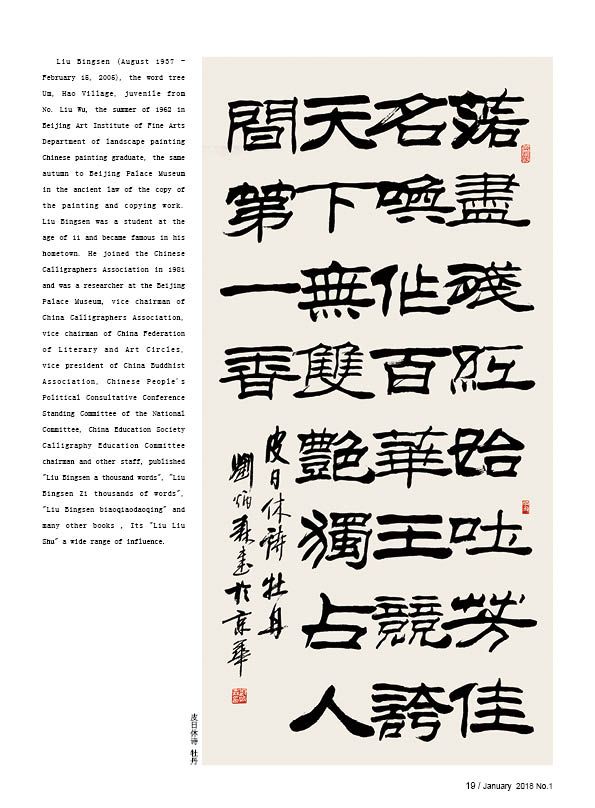 Liu Bingsen (August 1937 -
February i5, 2005), the word tree
Um, Hao Village, juvenile from
No. Liu Wu, the summer of 1962 in
Beijing Art Institute of Fine Arts
Department of landscape painting
Chinese painting graduate, the same
autumn to Beijing Palace Museum
in the ancient law of the copy of
the painting and copying work.
Liu Bingsen was a student at the
age of ii and became famous in his
hometown. He joined the Chinese
Calligraphers Association in 198i
and was a researcher at the Beijing
Palace Museum, vice chairman of
China Calligraphers Association,
vice chairman of China Federation
of Literary and Art Circles,
vice president of China Buddhist
Association, Chinese People's
Political Consultative Conference
Standing Committee of the National
Committee, China Education Society
Calligraphy Education Committee
chairman and other staff, published
"Liu Bingsen a thousand words", "Liu
Bingsen Zi thousands of words",
"Liu Bingsen biaoqiaodaoqing" and
many other books , Its "Liu Liu
Shu" a wide range of influence.
落盡殘紅始吐芳佳
名喚作百華王競誇
天下無雙艷獨占人
間第一香
皮日休詩牡丹
劉炳森書於京華
皮日休诗 牡丹
19 / January 2018 No.1